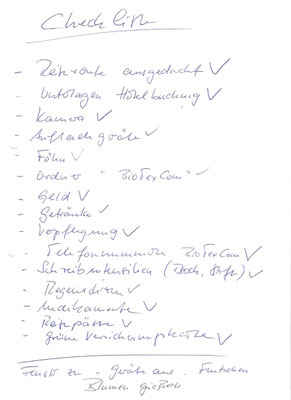 Checkliste
- Reiseroute ausgedruckt ✓
- Unterlagen Hotelbuchung ✓
- Kamera ✓
- Aufladegeräte ✓
- Föhn ✓
- Ordner "BioTexCom" ✓
- Geld ✓
- Getränke ✓
- Verpflegung ✓
- Telefonnummern BioTexCom ✓
- Schreibutensilien (Block, Stift) ✓
- Regenschirm ✓
- Medikamente ✓
- Reisepässe ✓
- grüne Versicherungskarte ✓
Fenster zu - Geräte aus -
Blumen gießen